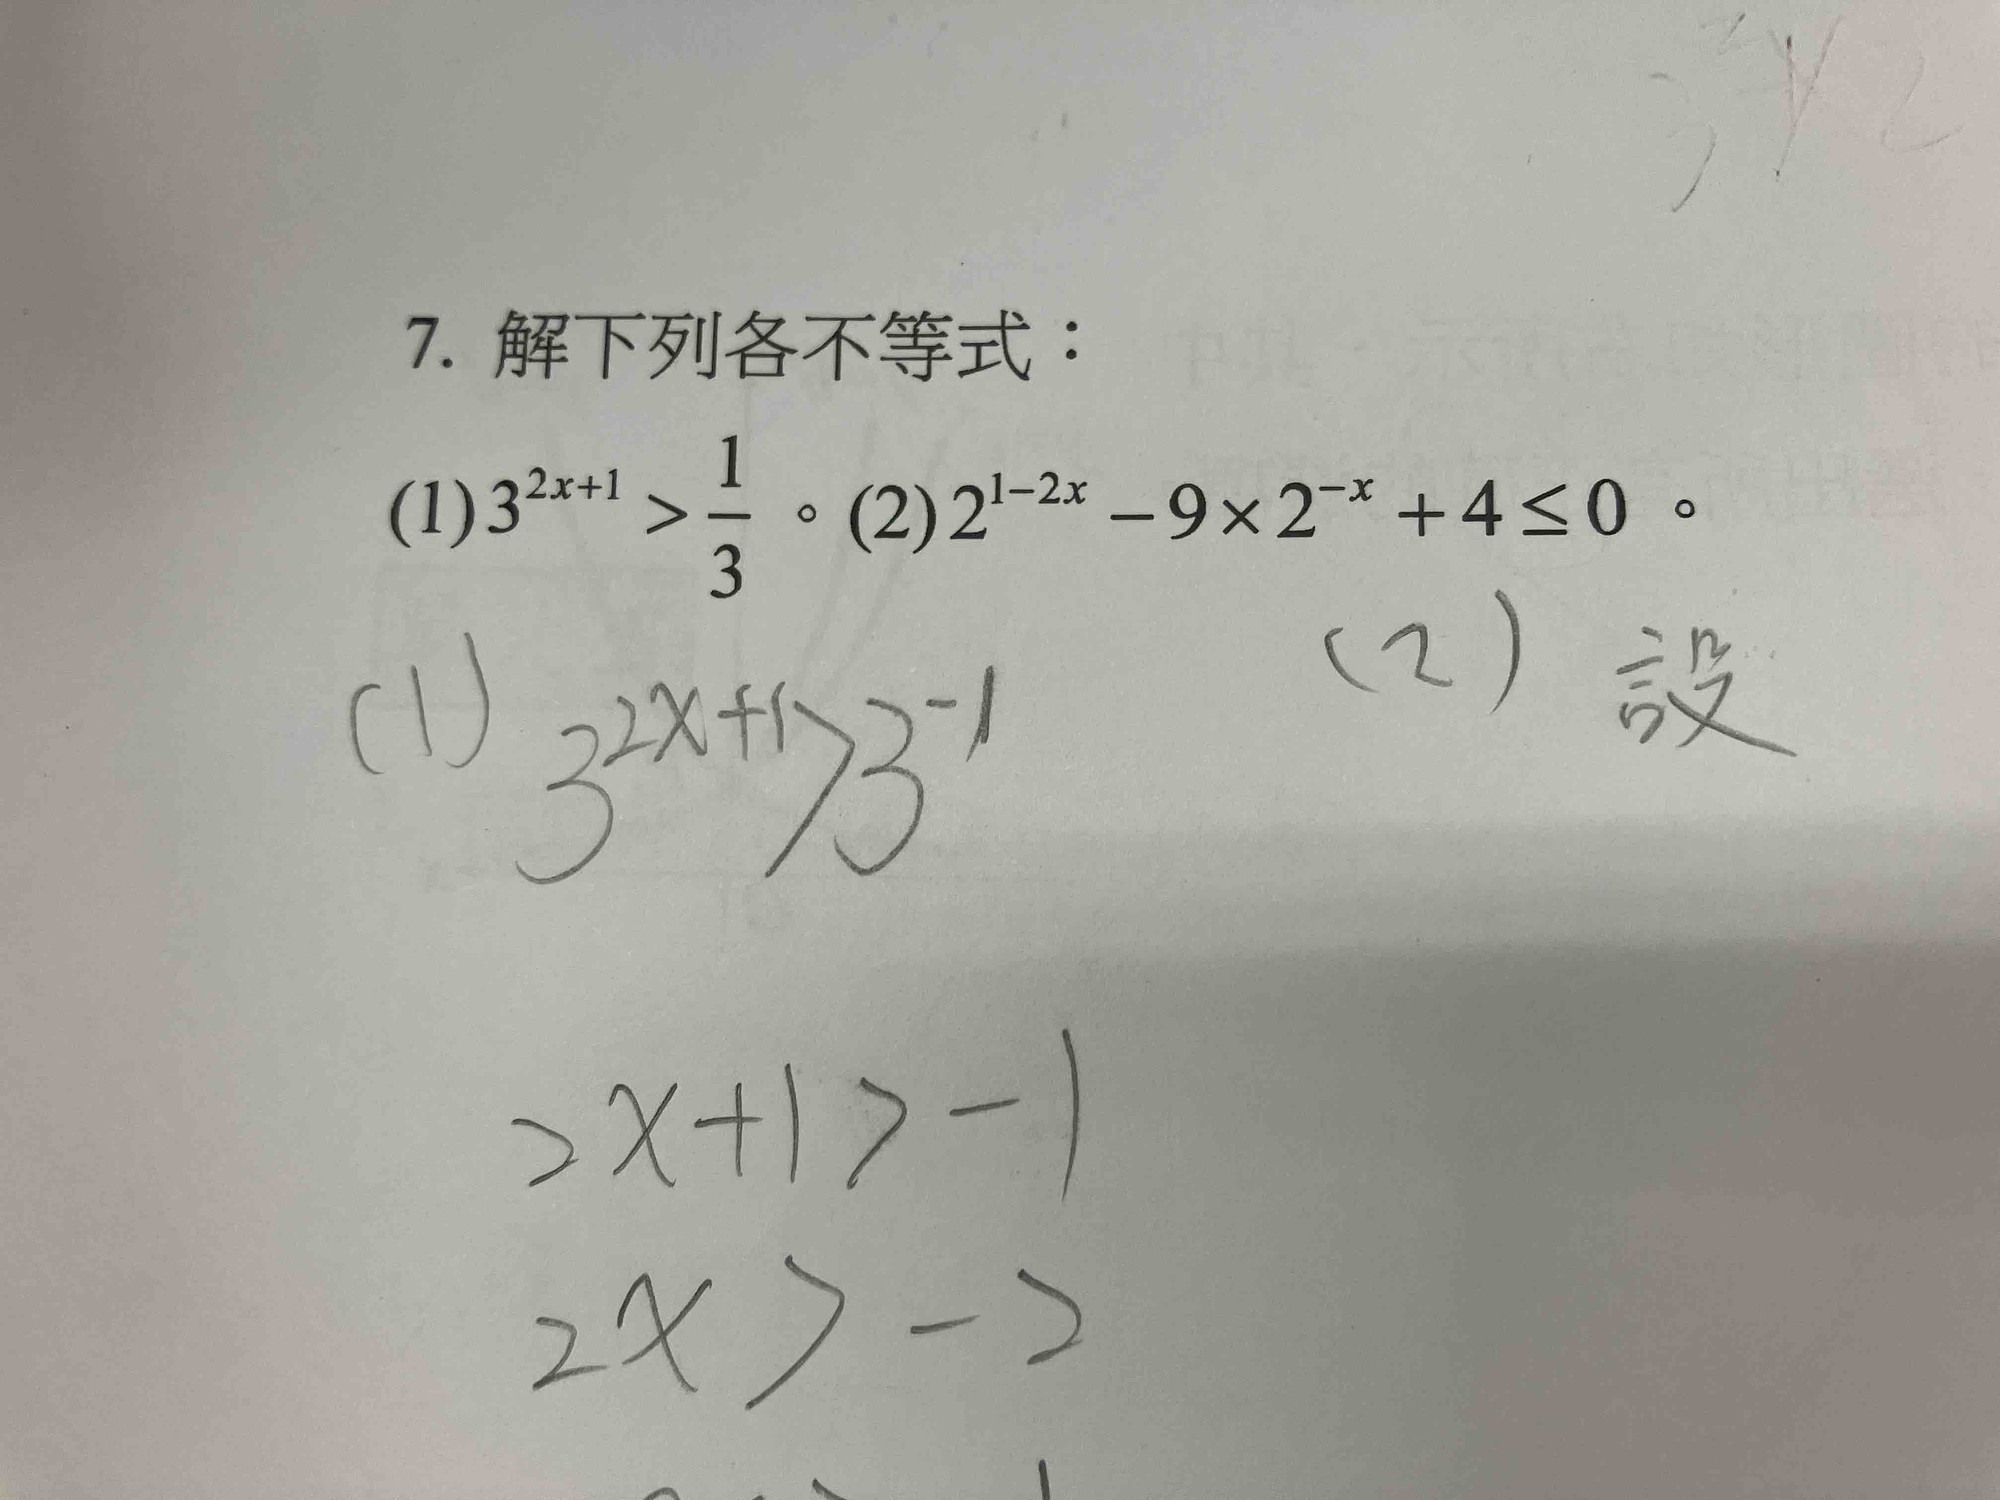 7. 解下列各不等式：
(1) 3^{2x+1} > \frac{1}{3} 。(2) 2^{1-2x} - 9 × 2^{-x} + 4 ≤ 0 。
(1) 3^{2x+1} > 3^{-1}
(2) 設
2x+1 > -1
2x > -2